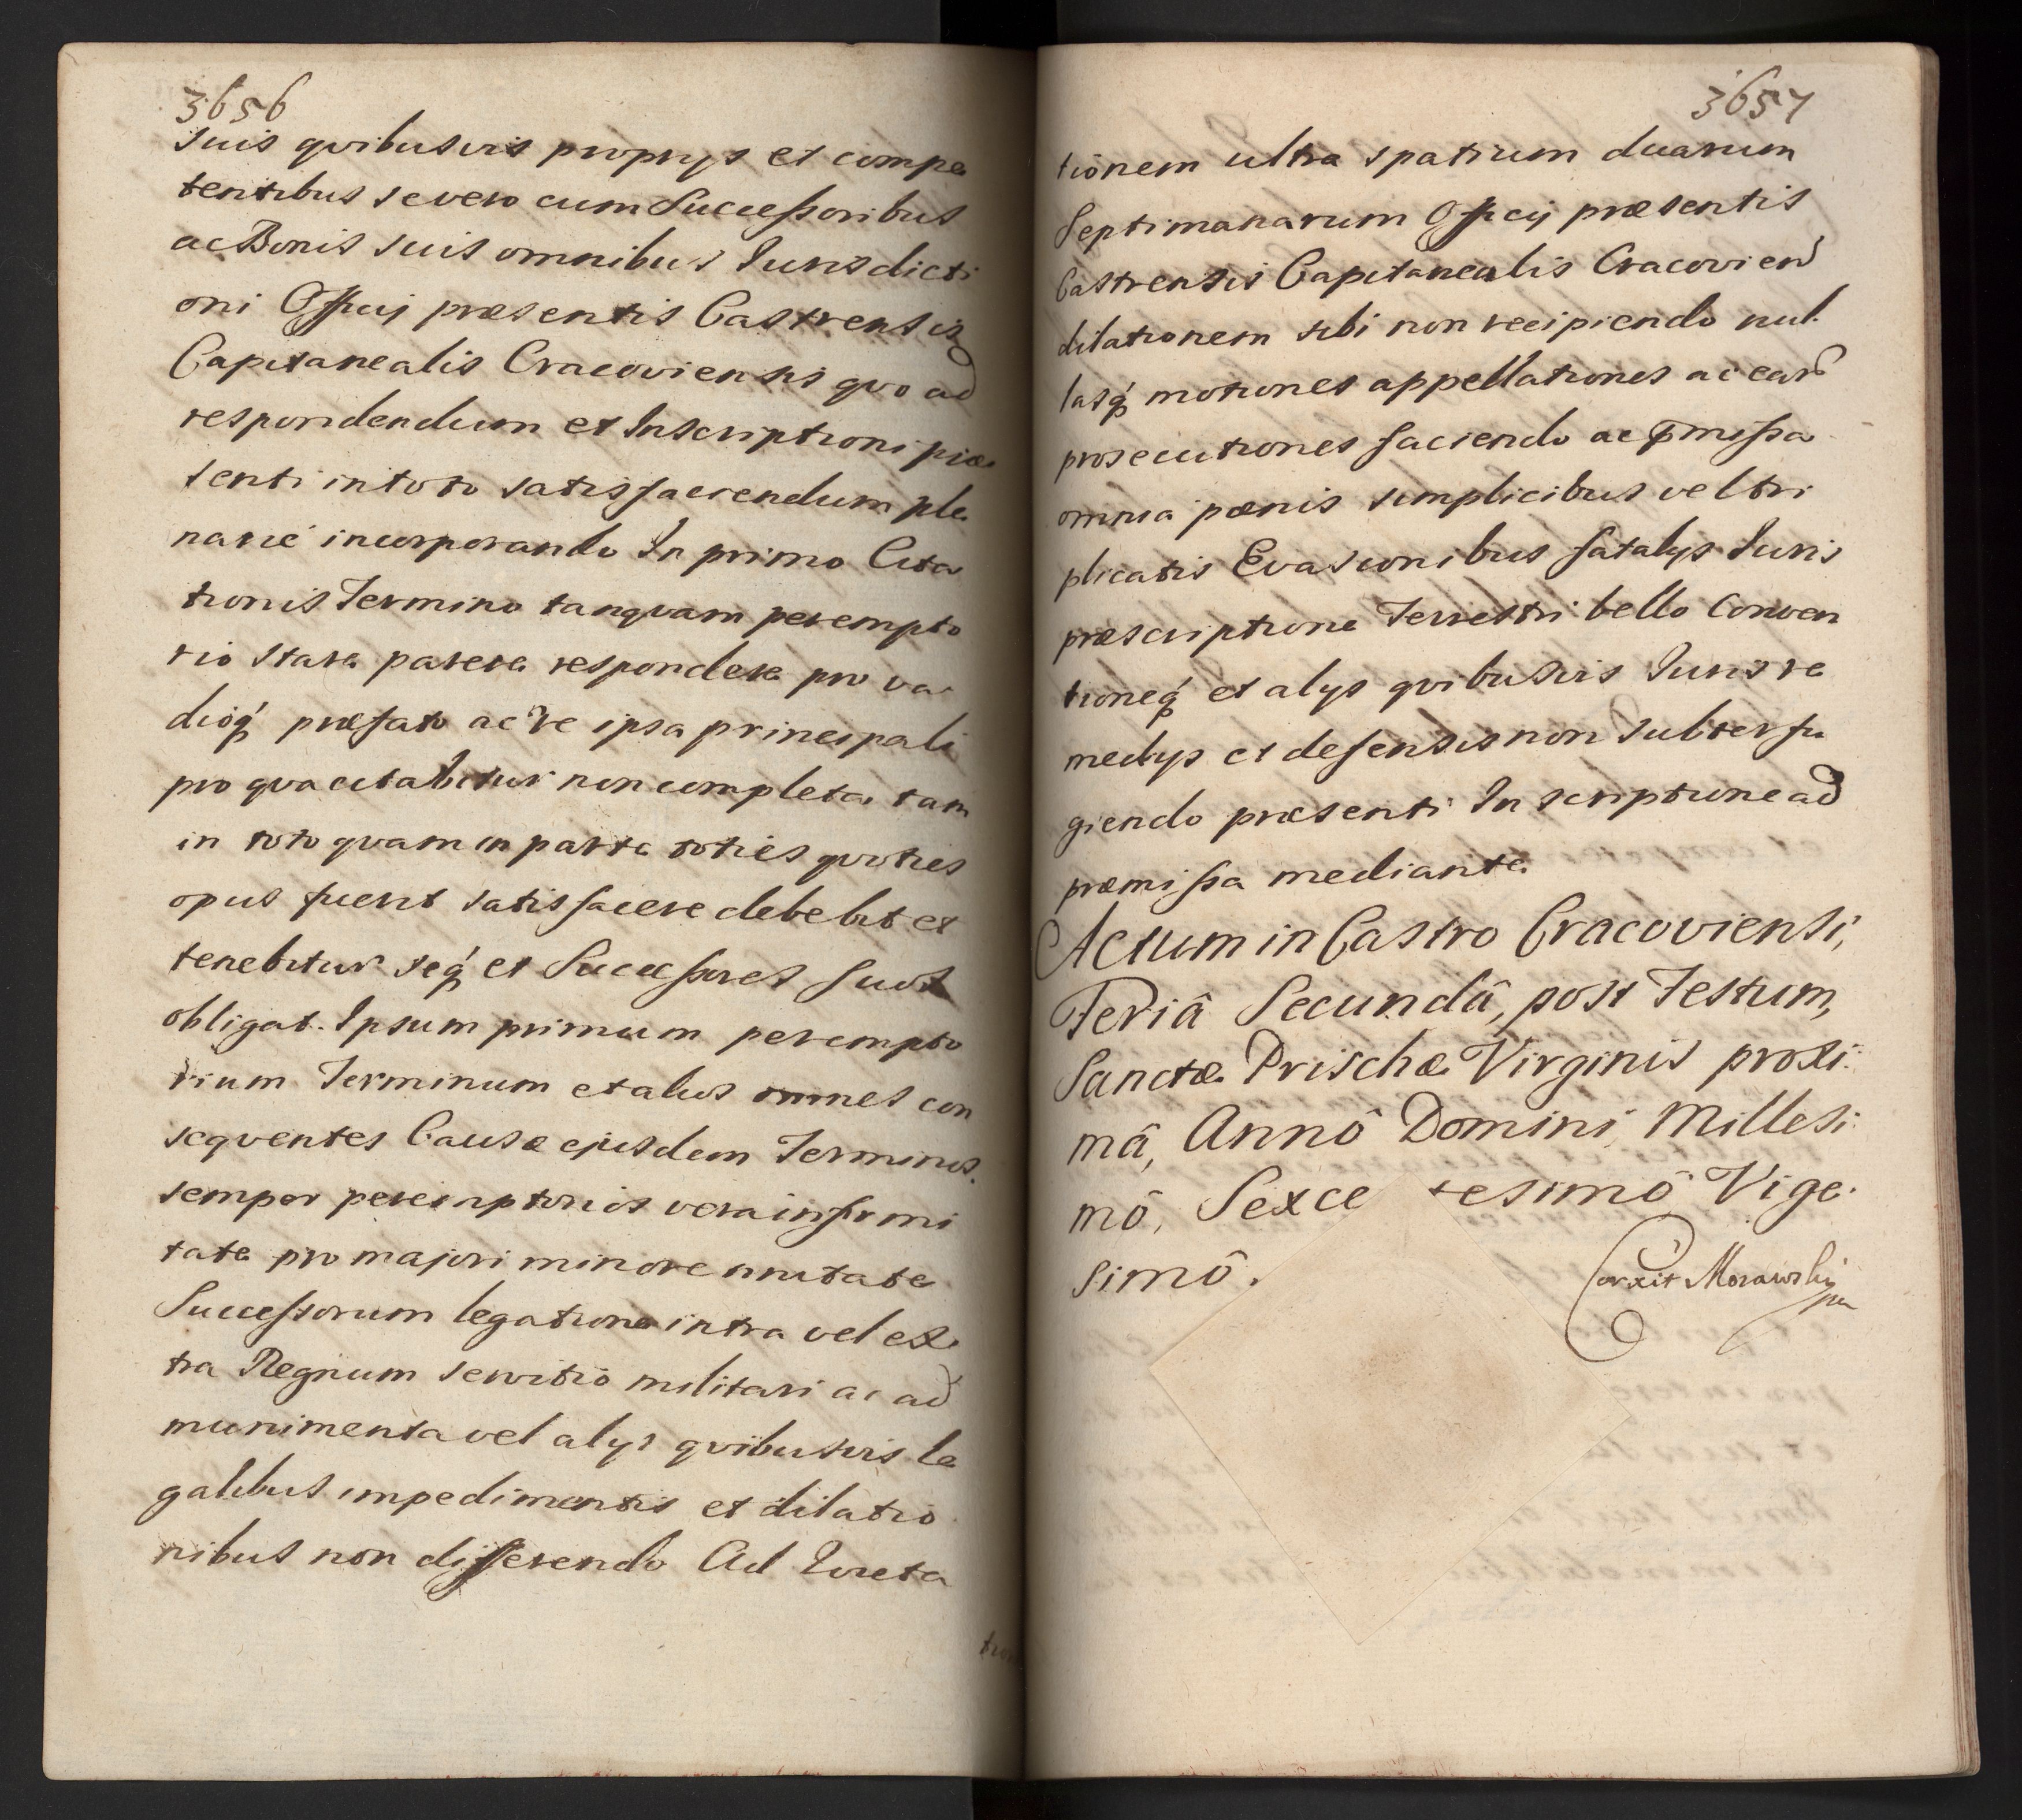 3656
suis qvibusvis proprys et compe
tentibus se vero cum Successoribus
ac Bonis suis omnibus Iurisdicti
oni Officij præsentis Castrensis
Capitanealis Cracoviensis qvo ad
respondendum et Inscriptioni præ
senti in toto satisfaciendum ple
narié incorporando In primo Cita
tionis Termino tanqvam perempto
rio stare parere respondere pro va
dioq́ præfato ac re ipsa principali
pro qva citabitur non completa tam
in toto qvam in parte toties qvoties
opus fuerit satisfacere debebit et
tenebitur seq́ et Successores suos
obligat. Ipsum primum perempto
rium Terminum et alios omnes con
seqventes Causæ ejusdem Terminos
semper peremptorios vera infirmi
tate pro majori minorennitate
Successorum legatione intra vel ex
tra Regnum servitio militari ac ad
munimenta vel alys qvibusvis le
galibus impedimentis et dilatio
nibus non differendo Ad Lucta
3657
tionem ultra spatium duarum
Septimanarum Officij præsentis
Castrensis Capitanealis Cracovien
dilationem sibi non recipiendo nul
lasq́ motiones appellationes ac ear
prosecutiones faciendo ac p̄missa
omnia pœnis simplicibus vel tri
plicatis Evasionibus fatalys Iuris
præscriptione Terrestri bello Conven
tioneq́ et alys qvibusvis Iuris re
medys et defensis non subterfu
giendo præsenti Inscriptione ad
præmissa mediante
Actum in Castro Cracoviensi,
Feriâ Secundâ, post Festum,
Sanctæ Prischæ Virginis proxi:
mâ, Annô Domini Millesi:
mô, Sexce tesimô Vige:
simô.
Corxit Morawski